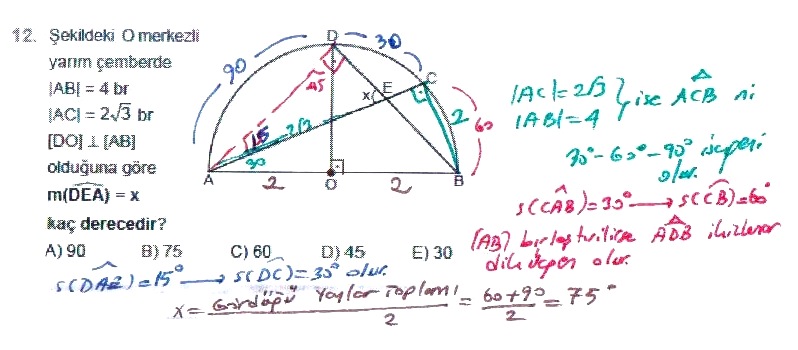 12. Şekildeki O merkezli
yarım çemberde
|AB| = 4 br
|AC| = 2√3 br
[DO] ⊥ [AB]
olduğuna göre
m(DEA) = x
kaç derecedir?
A) 90 B) 75 C) 60 D) 45 E) 30
D
90
30
C
45
E
x
2
60
15
2√3
30
A
2
O
2
B
|AC|=2√3
|AB|=4 } ise ACB ni
30°-60°-90° üçgeni
olur.
s(CAB)=30° → s(CB)=60°
[AB] birleştirilirse ADB ikizkenar
dik üçgen olur.
s(DAE)=15° → s(DC)=30° olur.
x = Gördüğü Yaylar Toplamı / 2 = 60+90 / 2 = 75°